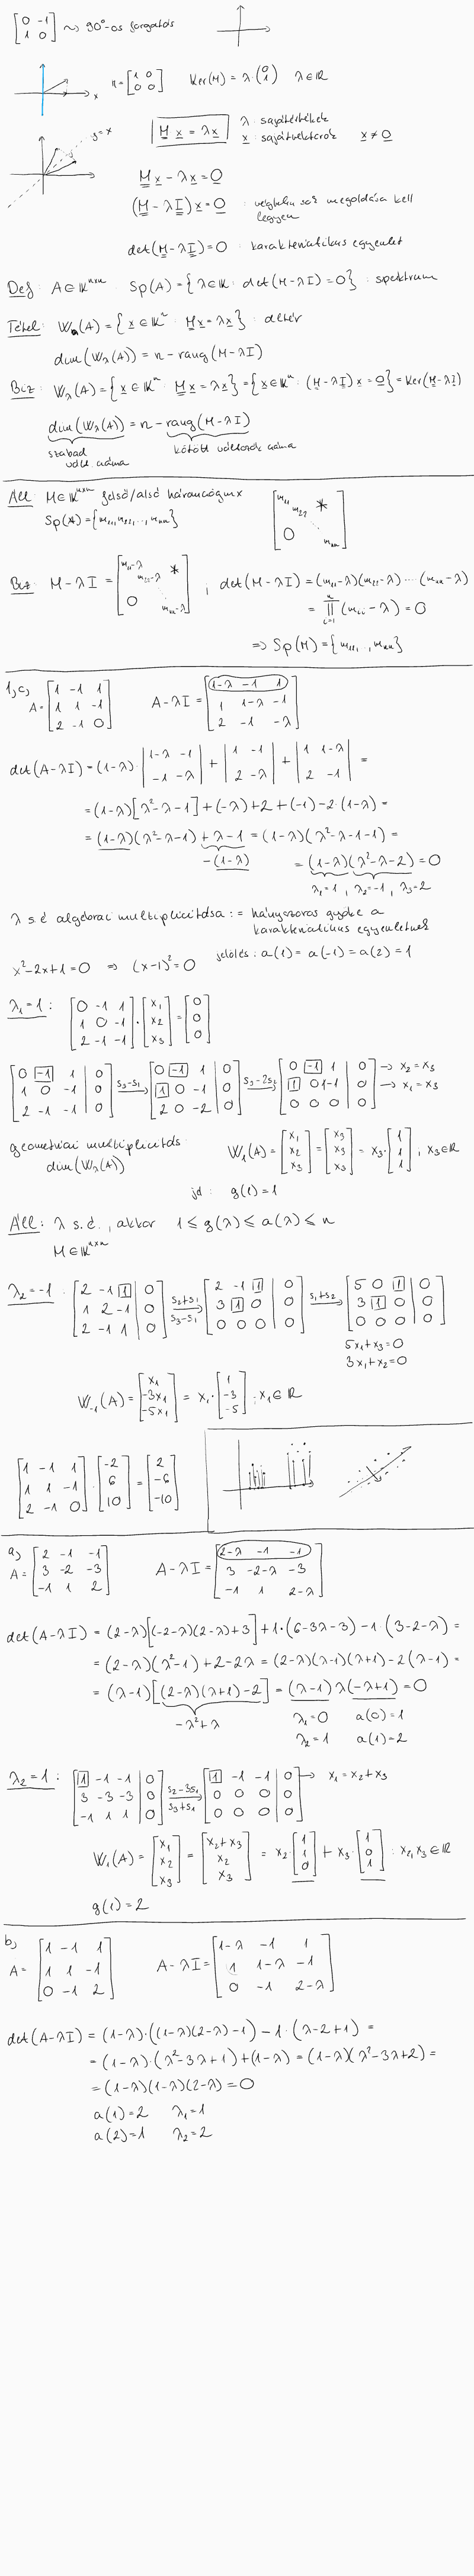 [0 -1; 1 0] ~> 90°-os forgatás
x M = [1 0; 0 0] Ker(M) = λ·(0; 1) λ∈ℝ
y=x
M x = λ x λ: sajátértékek
x: sajátvektorok x ≠ 0
M x - λ x = 0
(M - λ I) x = 0 : végtelen sok megoldása kell legyen
det(M - λI) = 0 : karakterisztikus egyenlet
Def: A∈𝕂ⁿˣⁿ Sp(A) = {λ∈𝕂: det(M-λI)=0} : spektrum
Tétel: W_λ(A) = {x∈𝕂ⁿ : Mx = λx} : altér
dim(W_λ(A)) = n - rang(M-λI)
Biz: W_λ(A) = {x∈𝕂ⁿ : Mx = λx} = {x∈𝕂ⁿ : (M-λI)x = 0} = Ker(M-λI)
dim(W_λ(A)) = n - rang(M-λI)
szabad vált. száma kötött változók száma
Áll: M∈𝕂ⁿˣⁿ felső/alsó háromszögmx [m₁₁ m₂₂ * 0 ⋱ mₙₙ]
Sp(A) = {m₁₁, m₂₂, ..., mₙₙ}
Biz: M-λI = [m₁₁-λ m₂₂-λ * 0 ⋱ mₙₙ-λ] ; det(M-λI) = (m₁₁-λ)(m₂₂-λ)·...·(mₙₙ-λ)
= ∏ᵢ₌₁ⁿ (mᵢᵢ-λ) = 0
=> Sp(M) = {m₁₁, ..., mₙₙ}
1, c) A = [1 -1 1; 1 1 -1; 2 -1 0] A-λI = [1-λ -1 1; 1 1-λ -1; 2 -1 -λ]
det(A-λI) = (1-λ)·|1-λ -1; -1 -λ| + |1 -1; 2 -λ| + |1 1-λ; 2 -1| =
= (1-λ)[λ²-λ-1] + (-λ) + 2 + (-1) - 2·(1-λ) =
= (1-λ)(λ²-λ-1) + λ-1 = (1-λ)(λ²-λ-1-1) =
-(1-λ) = (1-λ)(λ²-λ-2) = 0
λ₁=1, λ₂=-1, λ₃=2
λ s.é algebrai multiplicitása := hányszoros gyöke a karakterisztikus egyenletnek
x²-2x+1=0 => (x-1)²=0 jelölés: a(1) = a(-1) = a(2) = 1
λ₁=1: [0 -1 1; 1 0 -1; 2 -1 -1]·[x₁; x₂; x₃] = [0; 0; 0]
[0 -1 1 | 0; 1 0 -1 | 0; 2 -1 -1 | 0] s₃-s₁ → [0 -1 1 | 0; 1 0 -1 | 0; 2 0 -2 | 0] s₃-2s₂ → [0 -1 1 | 0; 1 0 -1 | 0; 0 0 0 | 0] → x₂=x₃ → x₁=x₃
geometriai multiplicitás: dim(W_λ(A)) W₁(A) = [x₁; x₂; x₃] = [x₃; x₃; x₃] = x₃·[1; 1; 1], x₃∈ℝ
jel: g(1)=1
Áll: λ s.é., akkor 1 ≤ g(λ) ≤ a(λ) ≤ n
M∈𝕂ⁿˣⁿ
λ₂=-1: [2 -1 1 | 0; 1 2 -1 | 0; 2 -1 1 | 0] s₂+s₁ s₃-s₁ → [2 -1 1 | 0; 3 1 0 | 0; 0 0 0 | 0] s₁+s₂ → [5 0 1 | 0; 3 1 0 | 0; 0 0 0 | 0]
5x₁+x₃=0
3x₁+x₂=0
W₋₁(A) = [x₁; -3x₁; -5x₁] = x₁·[1; -3; -5] : x₁∈ℝ
[1 -1 1; 1 1 -1; 2 -1 0]·[-2; 6; 10] = [2; -6; -10]
a) A = [2 -1 -1; 3 -2 -3; -1 1 2] A-λI = [2-λ -1 -1; 3 -2-λ -3; -1 1 2-λ]
det(A-λI) = (2-λ)[(-2-λ)(2-λ)+3] + 1·(6-3λ-3) - 1·(3-2-λ) =
= (2-λ)(λ²-1) + 2-2λ = (2-λ)(λ-1)(λ+1) - 2(λ-1) =
= (λ-1)[(2-λ)(λ+1)-2] = (λ-1)λ(-λ+1) = 0
-λ²+λ λ₁=0 a(0)=1
λ₂=1 a(1)=2
λ₂=1: [1 -1 -1 | 0; 3 -3 -3 | 0; -1 1 1 | 0] s₂-3s₁ s₃+s₁ → [1 -1 -1 | 0; 0 0 0 | 0; 0 0 0 | 0] → x₁=x₂+x₃
W₁(A) = [x₁; x₂; x₃] = [x₂+x₃; x₂; x₃] = x₂·[1; 1; 0] + x₃·[1; 0; 1] : x₂,x₃∈ℝ
g(1)=2
b) A = [1 -1 1; 1 1 -1; 0 -1 2] A-λI = [1-λ -1 1; 1 1-λ -1; 0 -1 2-λ]
det(A-λI) = (1-λ)·((1-λ)(2-λ)-1) - 1·(λ-2+1) =
= (1-λ)·(λ²-3λ+1) + (1-λ) = (1-λ)(λ²-3λ+2) =
= (1-λ)(1-λ)(2-λ) = 0
a(1)=2 λ₁=1
a(2)=1 λ₂=2